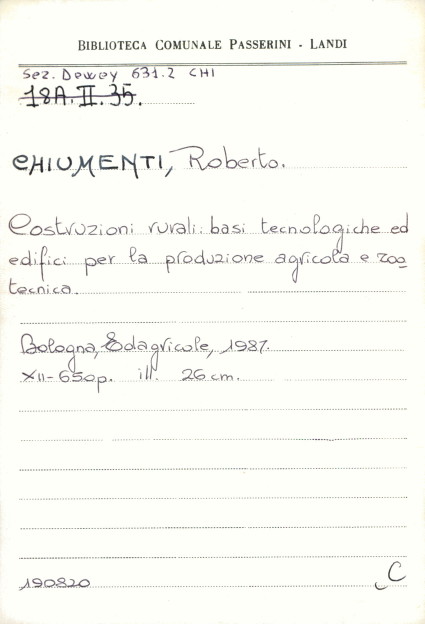 BIBLIOTECA COMUNALE PASSERINI - LANDI
Sez. Dewey 631.2 CHI
18A.II.35.
CHIUMENTI, Roberto.
Costruzioni rurali: basi tecnologiche ed
edifici per la produzione agricola e zoo
tecnica.
Bologna, Edagricole, 1987.
XII-650p. ill. 26 cm.
190820
C